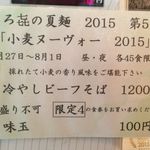 ろ喆の夏麺 2015 第5
「小麦ヌーヴォー 2015」
27日~8月1日 昼・夜 各45食限
採れたて小麦の香り風味をご堪能下さい
冷やしビーフそば 1200
盛り不可 限定4 の食券をお買い求めくだ
味玉 100円